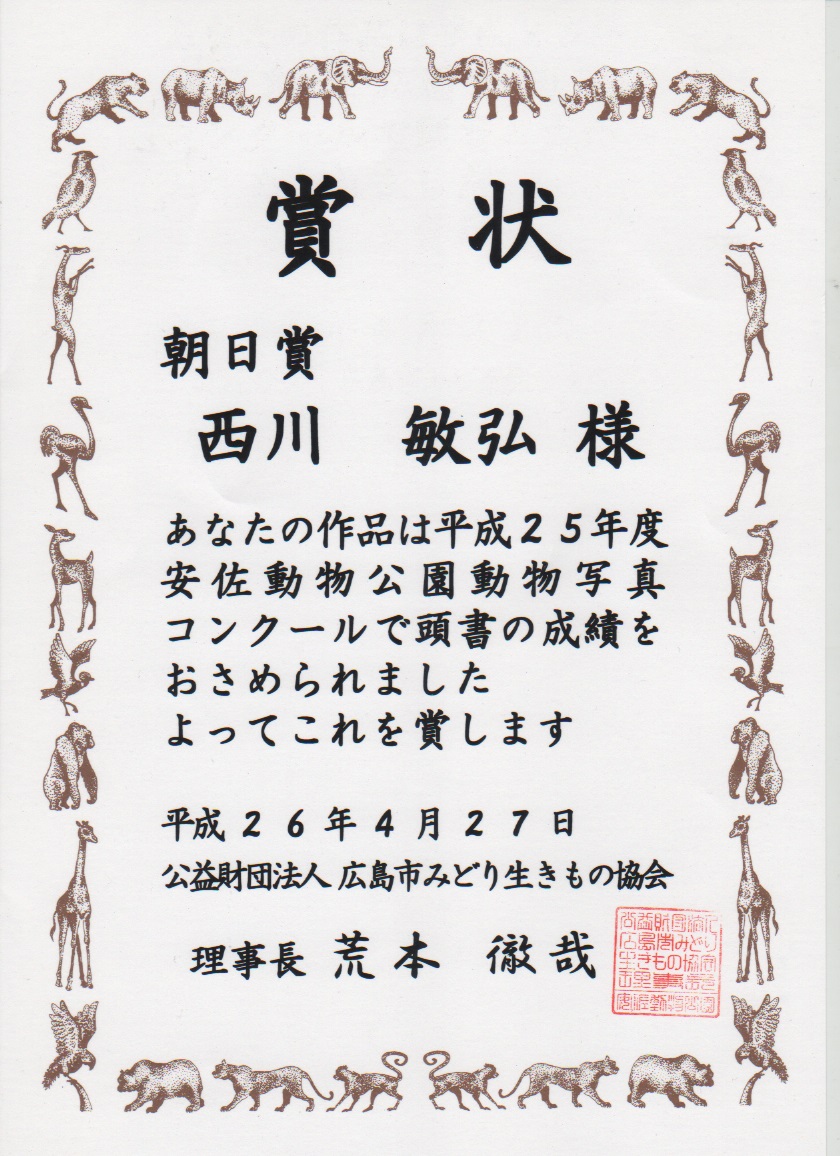 賞 状
朝日賞
西川 敏弘 様
あなたの作品は平成25年度
安佐動物公園動物写真
コンクールで頭書の成績を
おさめられました
よってこれを賞します
平成26年4月27日
公益財団法人 広島市みどり生きもの協会
理事長 荒本 徹哉